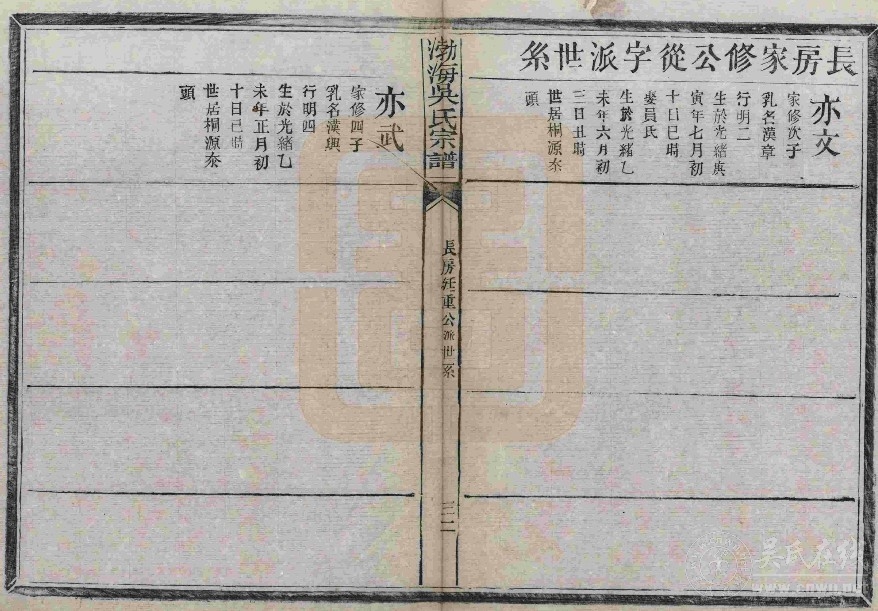 長房家修公從字派世系
亦文
家修次子
乳名漢章
行明二
生於光緒庚
寅年七月初
十日巳時
娶員氏
生於光緒乙
未年六月初
三日丑時
世居桐源泰
頭
渤海吳氏宗譜
長房紝重公派世系
三二
亦武
家修四子
乳名漢興
行明四
生於光緒乙
未年正月初
十日巳時
世居桐源泰
頭
吴氏在线
www.cnwu.net